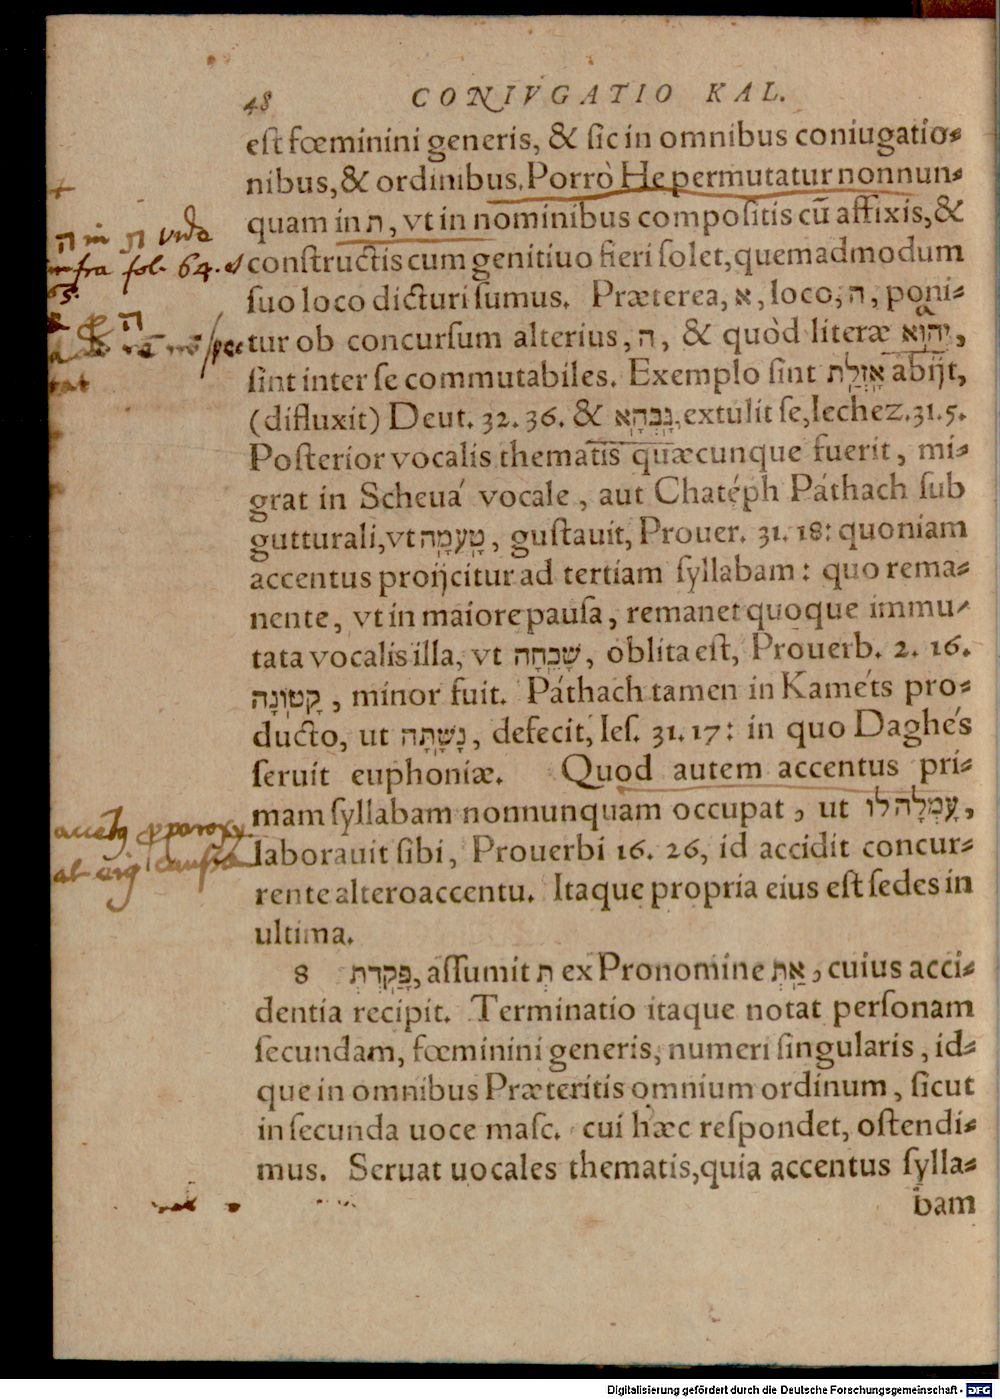 48 CONIVGATIO KAL.
est fœminini generis, & sic in omnibus coniugatio-
nibus, & ordinibus. Porrò He permutatur nonnun-
quam in ת, vt in nominibus compositis cū affixis, &
constructis cum genitiuo fieri solet, quemadmodum
suo loco dicturi sumus. Præterea, א, loco, ה, poni-
tur ob concursum alterius, ה, & quòd literæ יְהוָֹא,
sint inter se commutabiles. Exemplo sint אָזְלַת abijt,
(difluxit) Deut. 32. 36. & גָּבְהָא, extulit se, Iechez. 31. 5.
Posterior vocalis thematis quæcunque fuerit, mi-
grat in Scheuá vocale, aut Chatéph Páthach sub
gutturali, vt טָעֲמָה, gustauit, Prouer. 31. 18: quoniam
accentus proijcitur ad tertiam syllabam: quo rema-
nente, vt in maiore pausa, remanet quoque immu-
tata vocalis illa, vt שָׁכֵחָה, oblita est, Prouerb. 2. 16.
קָטוֹנָה, minor fuit. Páthach tamen in Kaméts pro-
ducto, ut נָשָׁתָּה, defecit, Ies. 31. 17: in quo Daghés
seruit euphoniæ. Quod autem accentus pri-
mam syllabam nonnunquam occupat, ut עָמְלָה לּו,
laborauit sibi, Prouerbi 16. 26, id accidit concur-
rente altero accentu. Itaque propria eius est sedes in
ultima.
8 פָּקַדְתְּ, assumit תְּ ex Pronomine אַתְּ, cuius acci-
dentia recipit. Terminatio itaque notat personam
secundam, fœminini generis, numeri singularis, id-
que in omnibus Præteritis omnium ordinum, sicut
in secunda uoce masc. cui hæc respondet, ostendi-
mus. Seruat uocales thematis, quia accentus sylla-
bam
+
ה in ת vide
infra fol. 64. et
65.
Digitalisierung gefördert durch die Deutsche Forschungsgemeinschaft - DFG